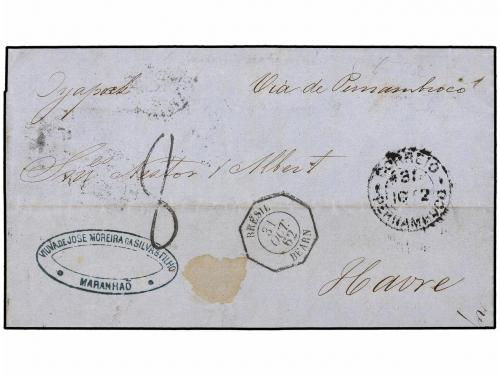 Via de Pernambuco
Snr Nestor / Albert
8
CORREIO
PERNAMBUCO
BRÉSIL
31
OCT.
62
BÉARN
VIUVA DE JOSÉ MOREIRA DA SILVA & FILHO
MARANHAÕ
Havre